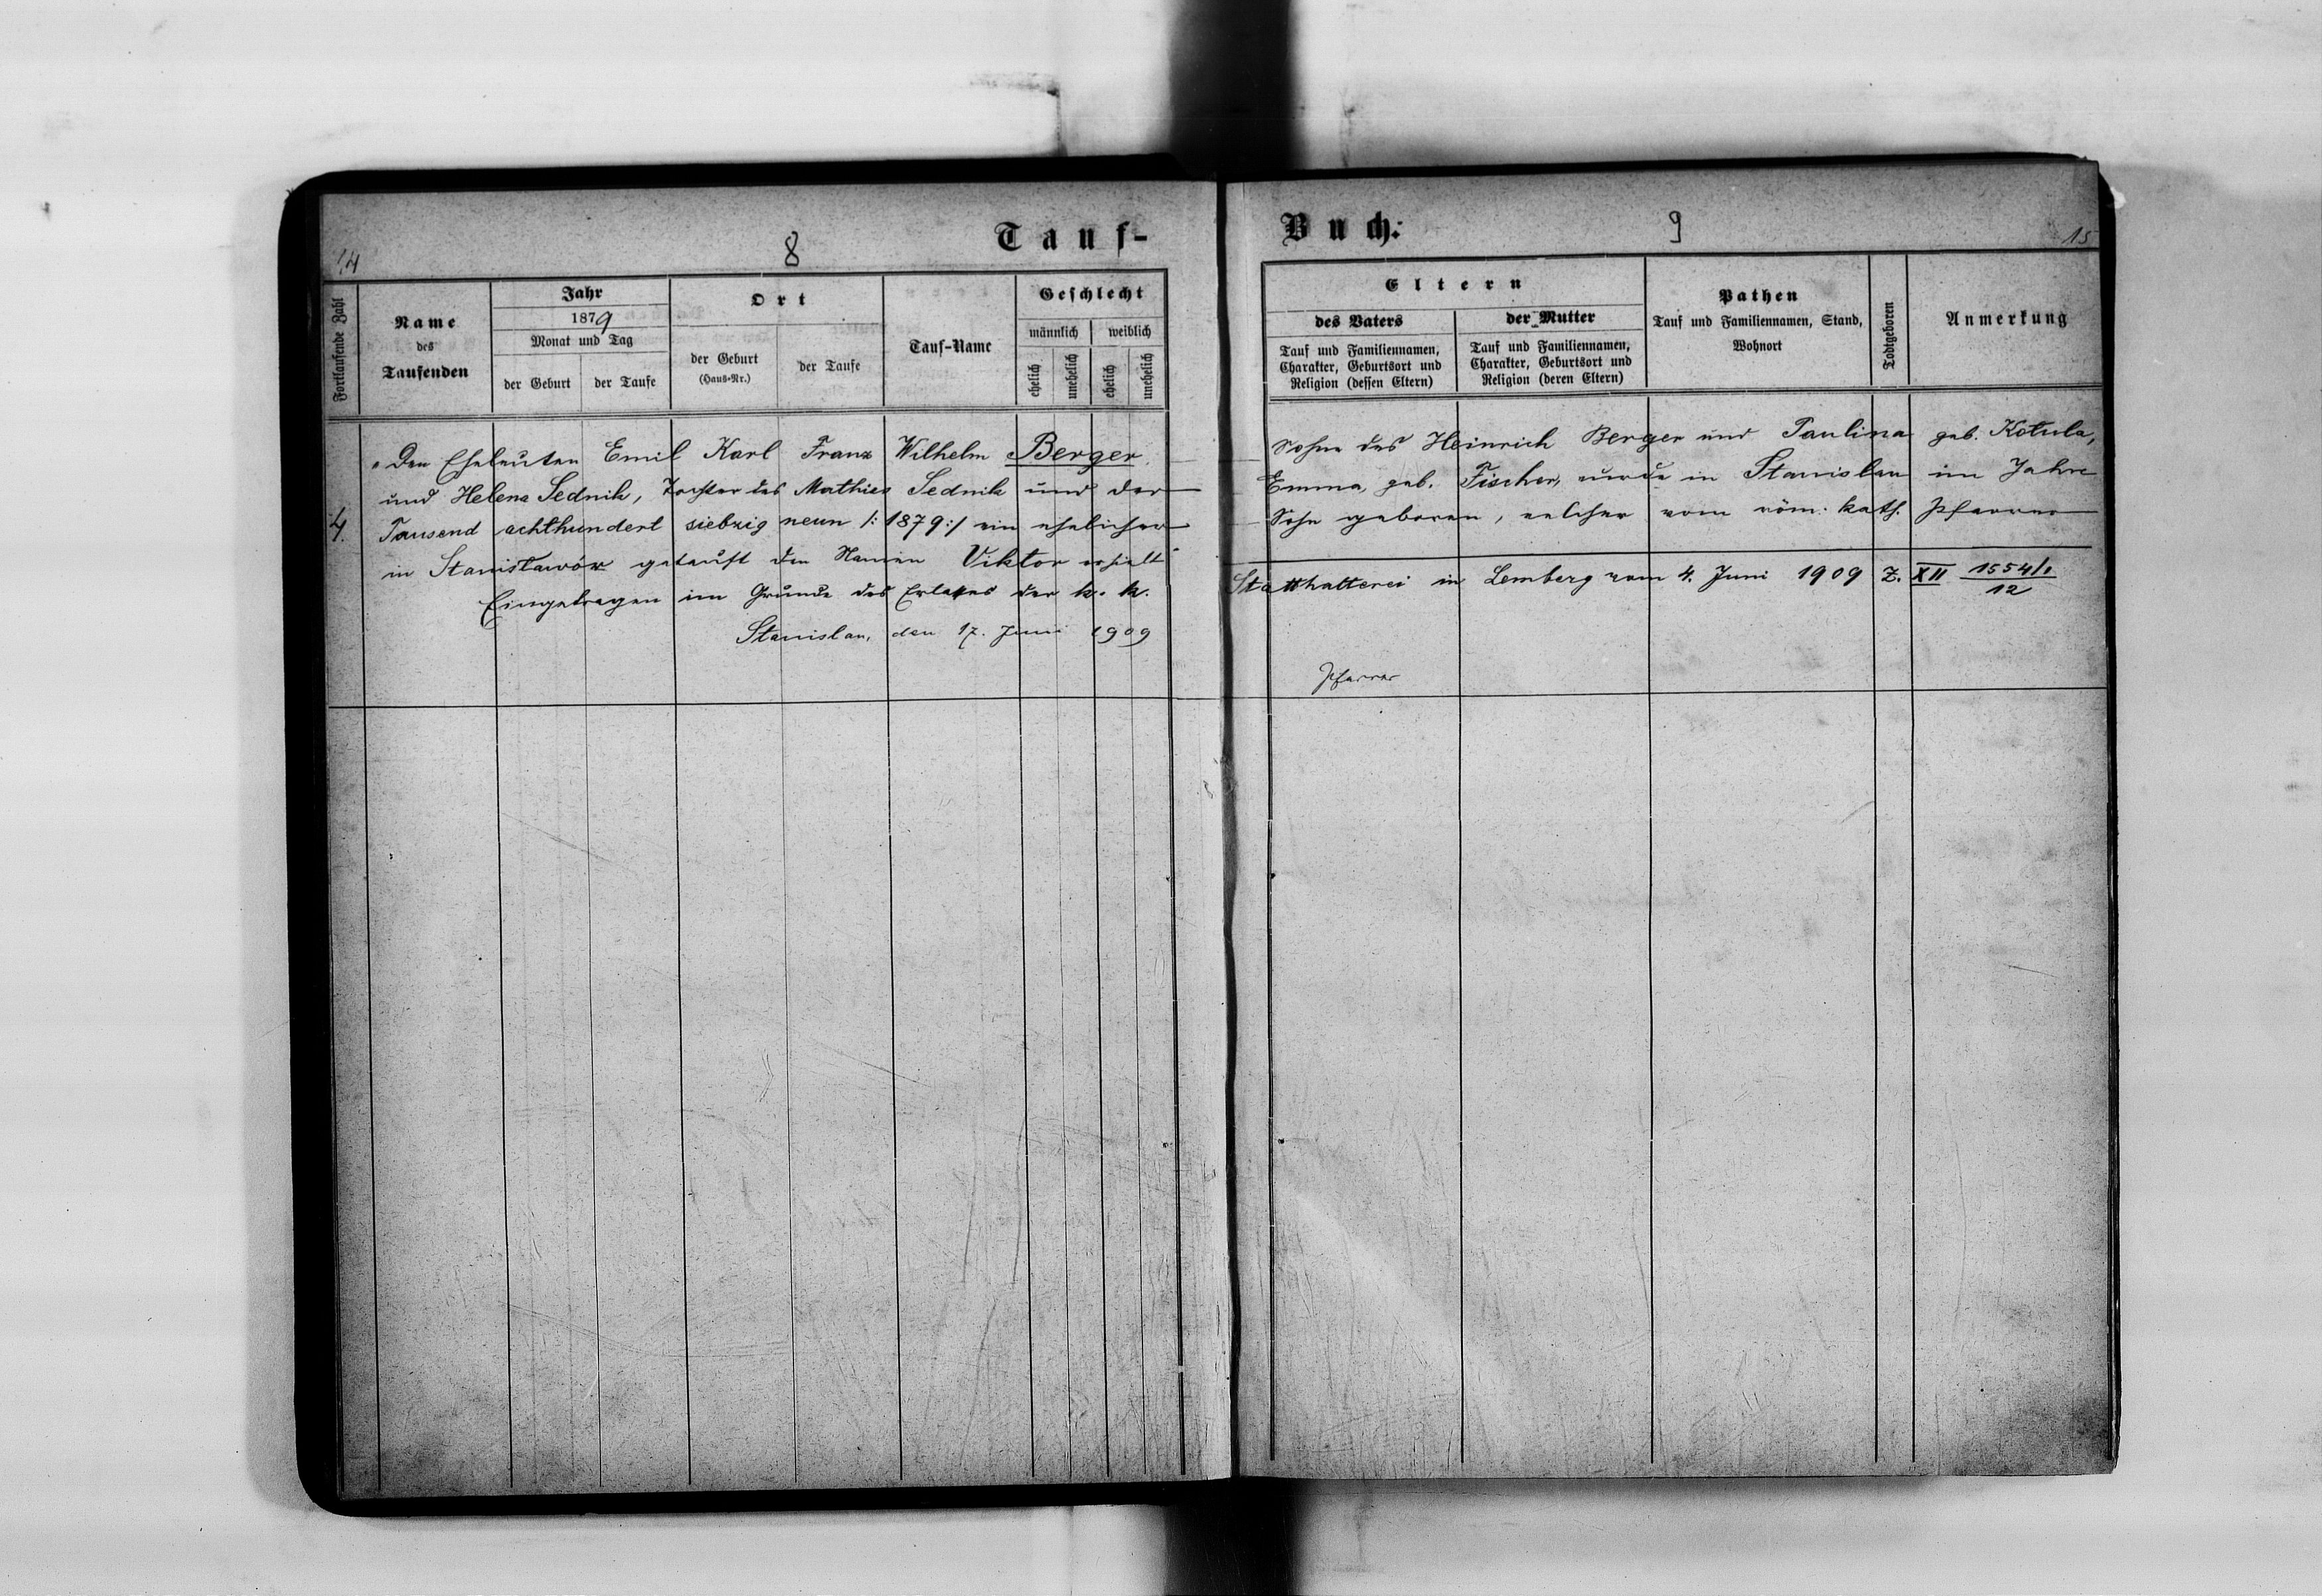 14
8
Tauf-
Buch:
9
15
Fortlaufende Zahl
Name
des
Taufenden
Jahr
1879
Monat und Tag
der Geburt
der Taufe
Ort
der Geburt
(Haus-Nr.)
der Taufe
Tauf-Name
Geschlecht
männlich
weiblich
ehelich
unehelich
ehelich
unehelich
Eltern
des Vaters
Tauf und Familiennamen,
Charakter, Geburtsort und
Religion (dessen Eltern)
der Mutter
Tauf und Familiennamen,
Charakter, Geburtsort und
Religion (deren Eltern)
Pathen
Tauf und Familiennamen, Stand,
Wohnort
Todtgeboren
Anmerkung
4.
"Den Eheleuten Emil Karl Franz Wilhelm Berger, Sohne des Heinrich Berger und Paulina geb. Kotula,
und Helena Sednik, Tochter des Mathies Sednik und der Emma, geb. Fischer, wurde in Stanislau im Jahre
Tausend achthundert siebzig neun /: 1879 :/ ein ehelicher Sohn geboren, welcher vom röm. kath. Pfarrer
in Stanisławów getauft den Namen Viktor erhielt"
Eingetragen im Grunde des Erlasses der k. k. Statthalterei in Lemberg vom 4. Juni 1909 Z. XII 1554/1
12
Stanislau, den 17. Juni 1909
Pfarrer